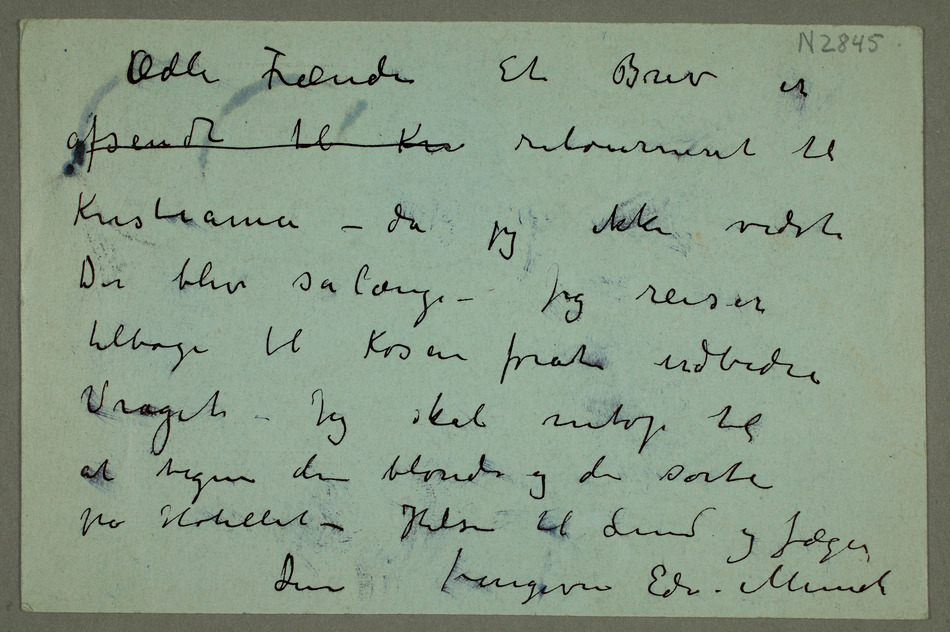 N2845
Ædle Frænde Et Brev er
afsendt til Kri retourneret til
Kristiania – da jeg ikke vidste
De blev så længe – Jeg reiser
tilbage til Kösen forat udbedre
Vraget – Jeg skal netop til
at tegne den blonde og den sorte
på Hotellet – Hilsen til Lund og Jæger
Din hengivne Edv. Munch